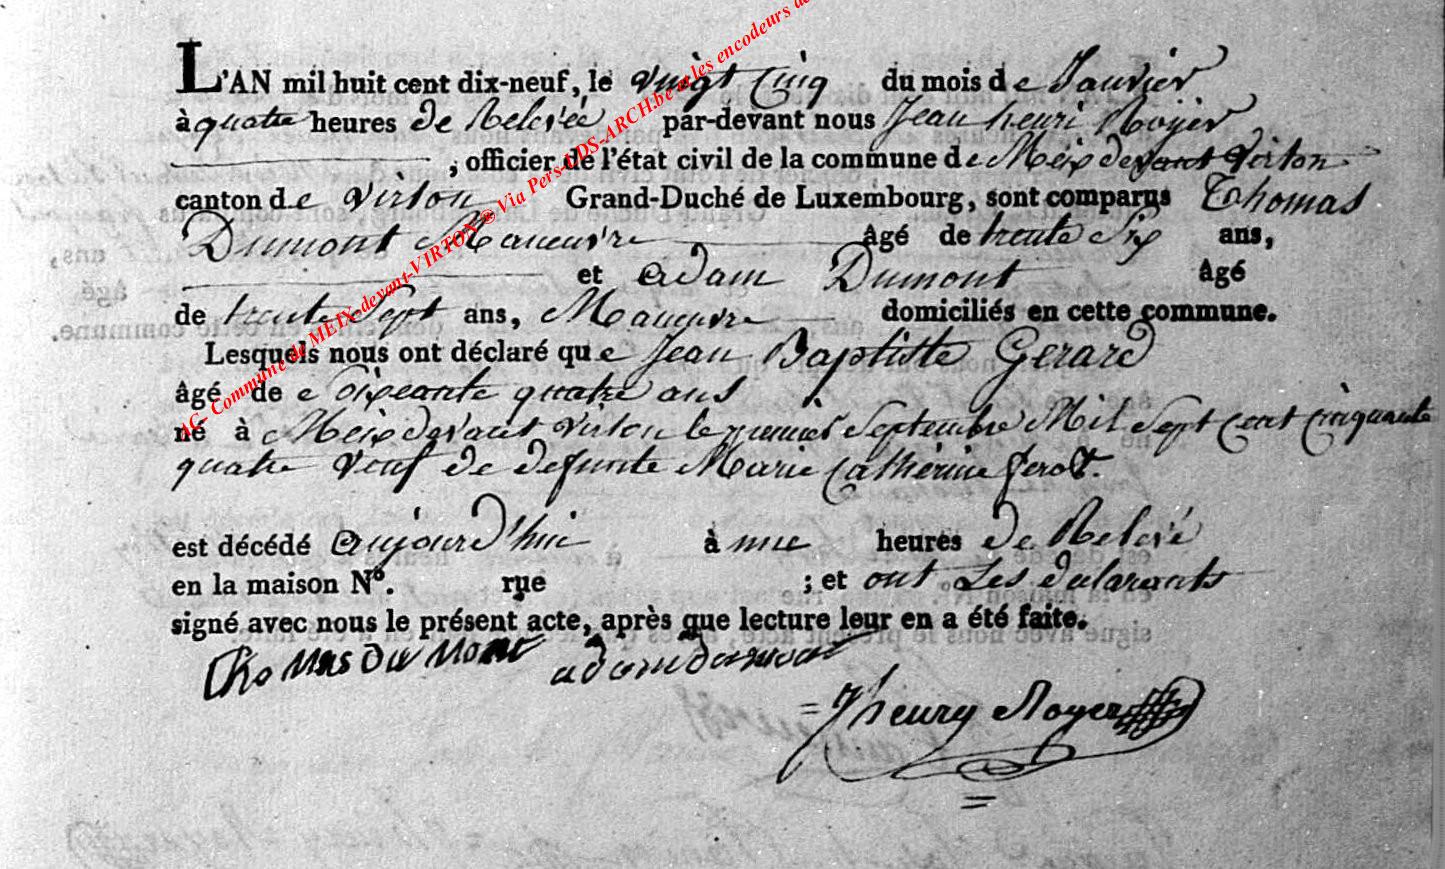 L'AN mil huit cent dix-neuf, le vingt Cinq du mois de Janvier
à quatre heures de Relevée par-devant nous Jean henri Royer
, officier de l'état civil de la commune de Meix devant Virton
canton de Virton Grand-Duché de Luxembourg, sont comparus Thomas
Dumont Maneuvre âgé de trente Six ans,
et adam Dumont âgé
de trente Sept ans, Maneuvre domiciliés en cette commune.
Lesquels nous ont déclaré que Jean Baptiste Gerard
âgé de Soixante quatre ans
né à Meix devant Virton le premier Septembre Mil Sept Cent Cinquante
quatre veuf de defunte Marie Catherine
est décédé aujourd'hui à une heures de Relevé
en la maison N°. rue ; et ont Les declarants
signé avec nous le présent acte, après que lecture leur en a été faite.
thomas du Mont adam dumont
Jhenry Royer
AG- Commune de MEIX-devant-VIRTON ® Via Pers-LDS-ARCH.be et les encodeurs de